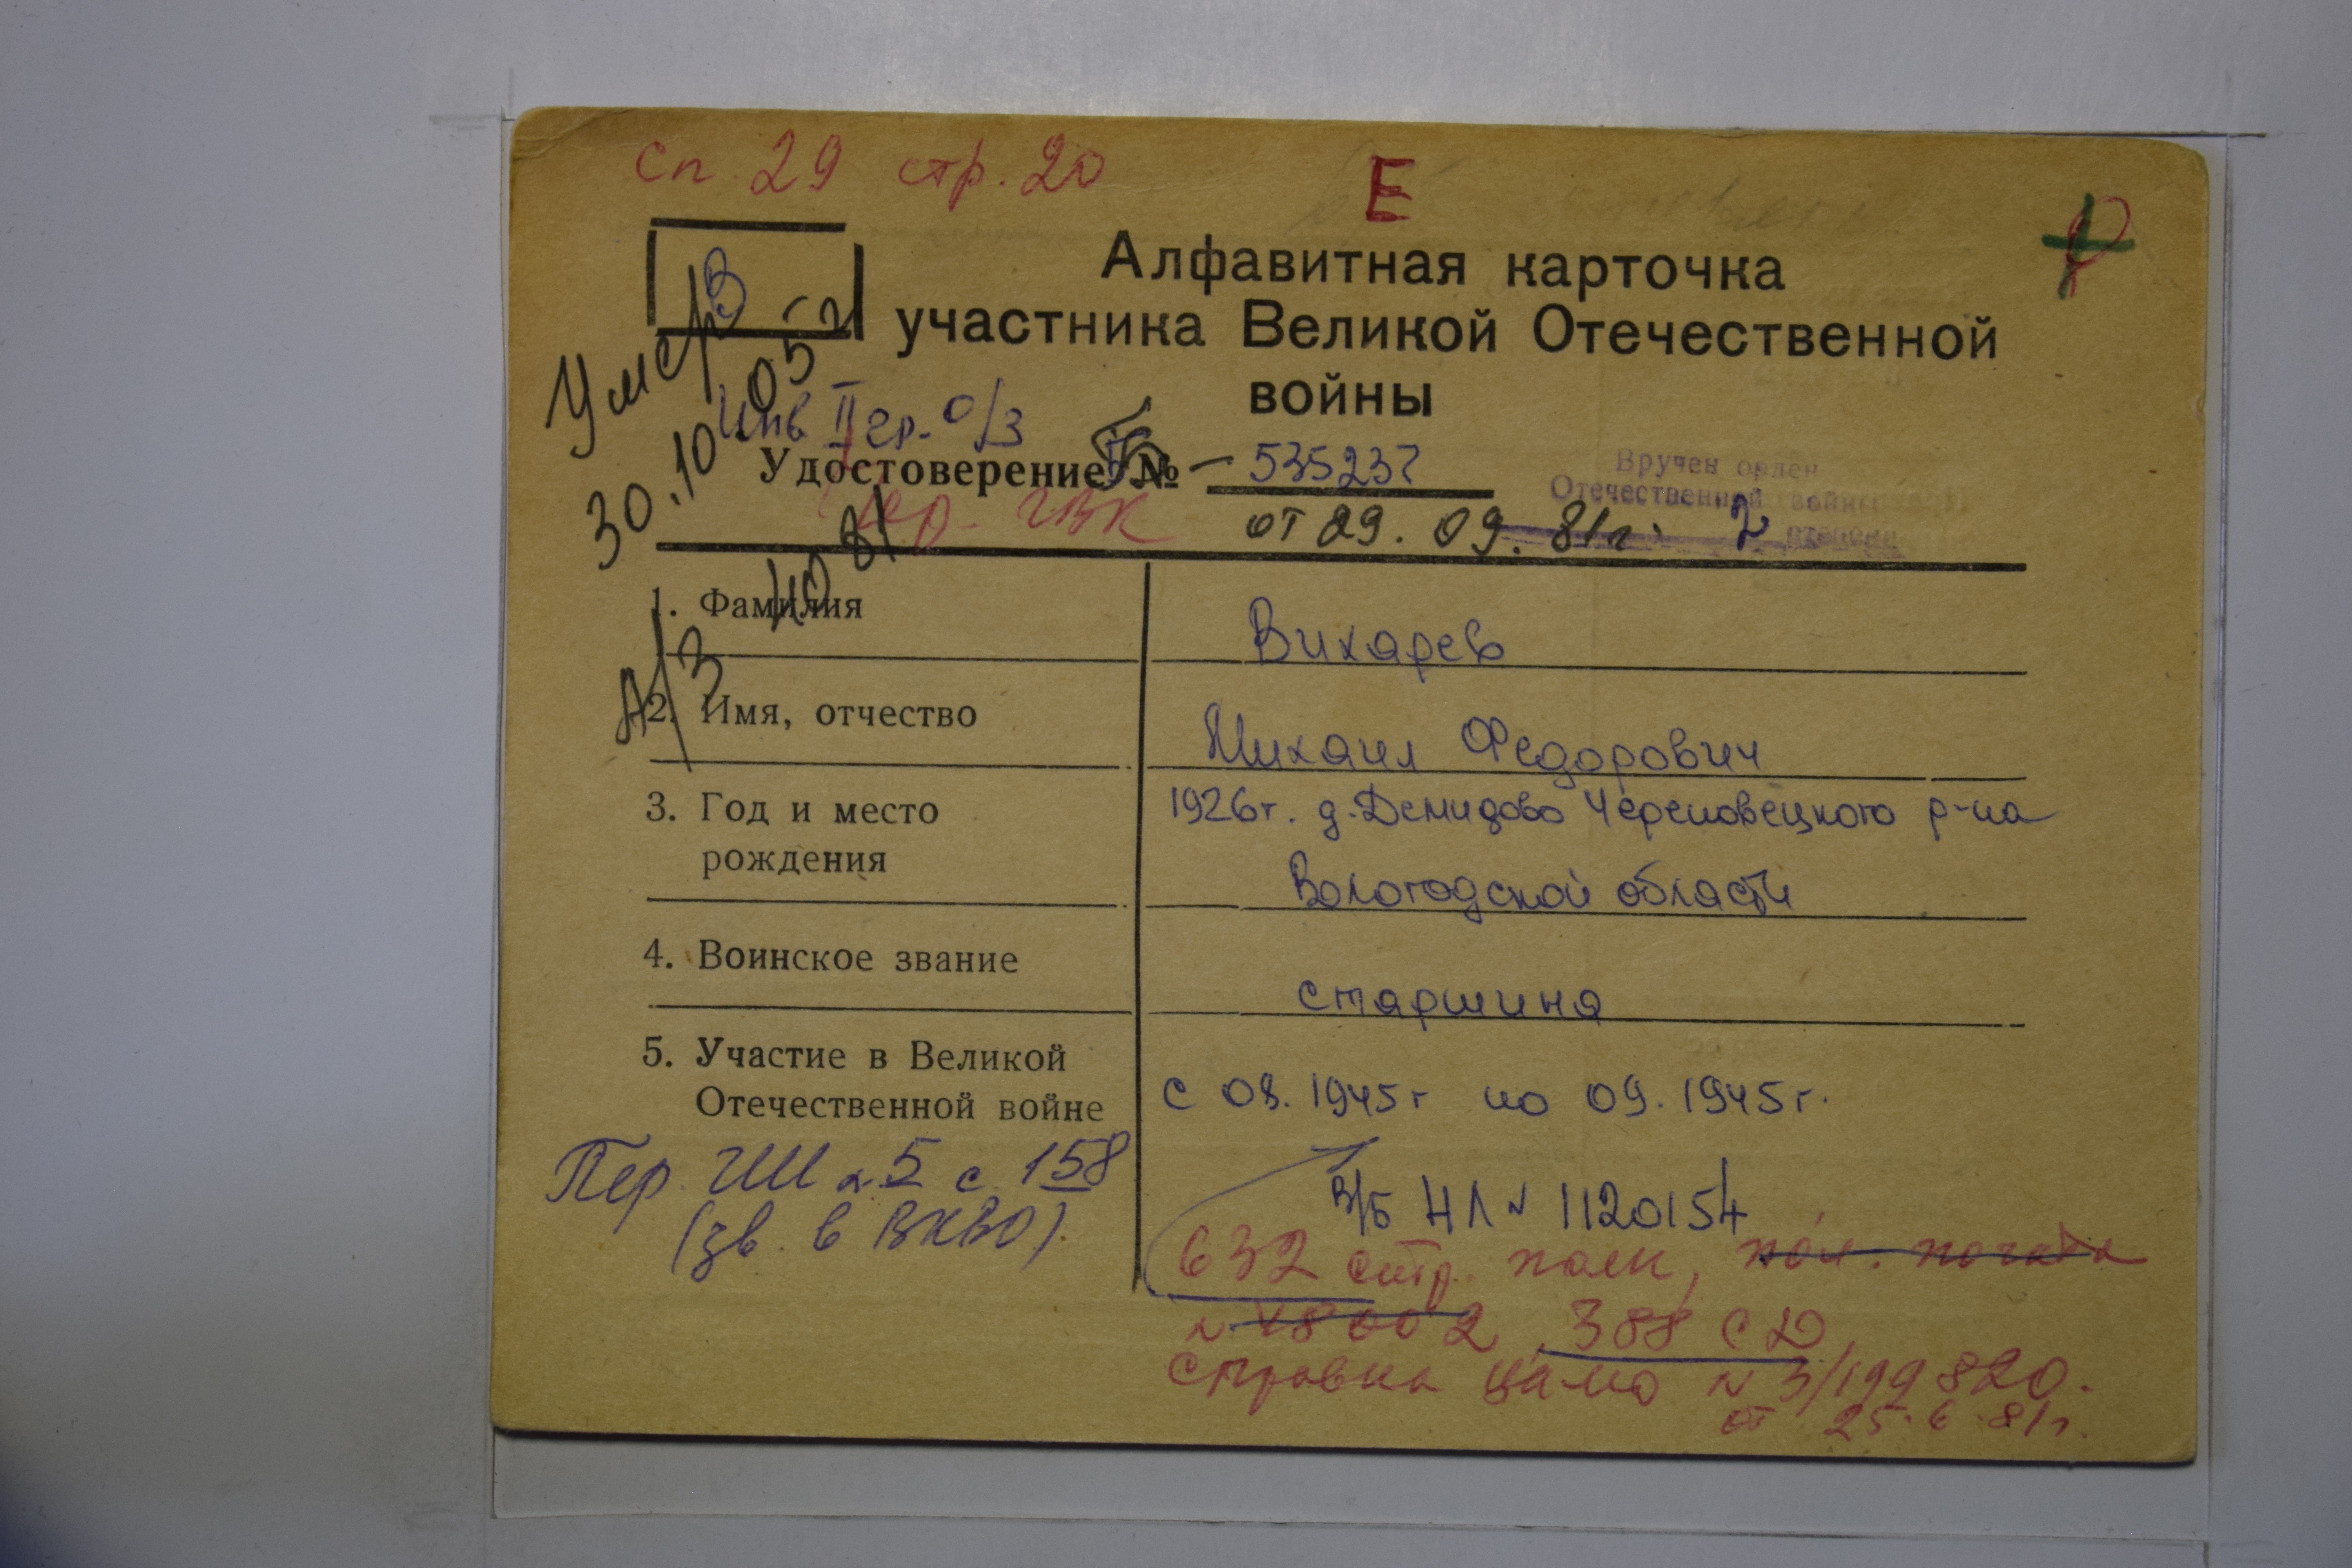 Сп. 29 стр. 20
Е
В
Алфавитная карточка
участника Великой Отечественной
войны
Умер
30.10.05 г
Инв II гр. о/з
Удостоверение № 535237
от 29. 09. 81г.
Вручен орден
Отечественной войны
2 степени
А/З
1. Фамилия Вихарев
2. Имя, отчество Михаил Федорович
3. Год и место 1926г. д. Демидово Череповецкого р-на
рождения Вологодской области
4. Воинское звание старшина
5. Участие в Великой
Отечественной войне с 08. 1945г по 09. 1945г.
Пер. 5 с. 158
(зв. в ВКВО).
В/Б НЛ № 1120154
632 стр. полк, пол. почта
№ 48002, 388 СД
справка ЦАМО № 3/199820.
от 25.6.81г.